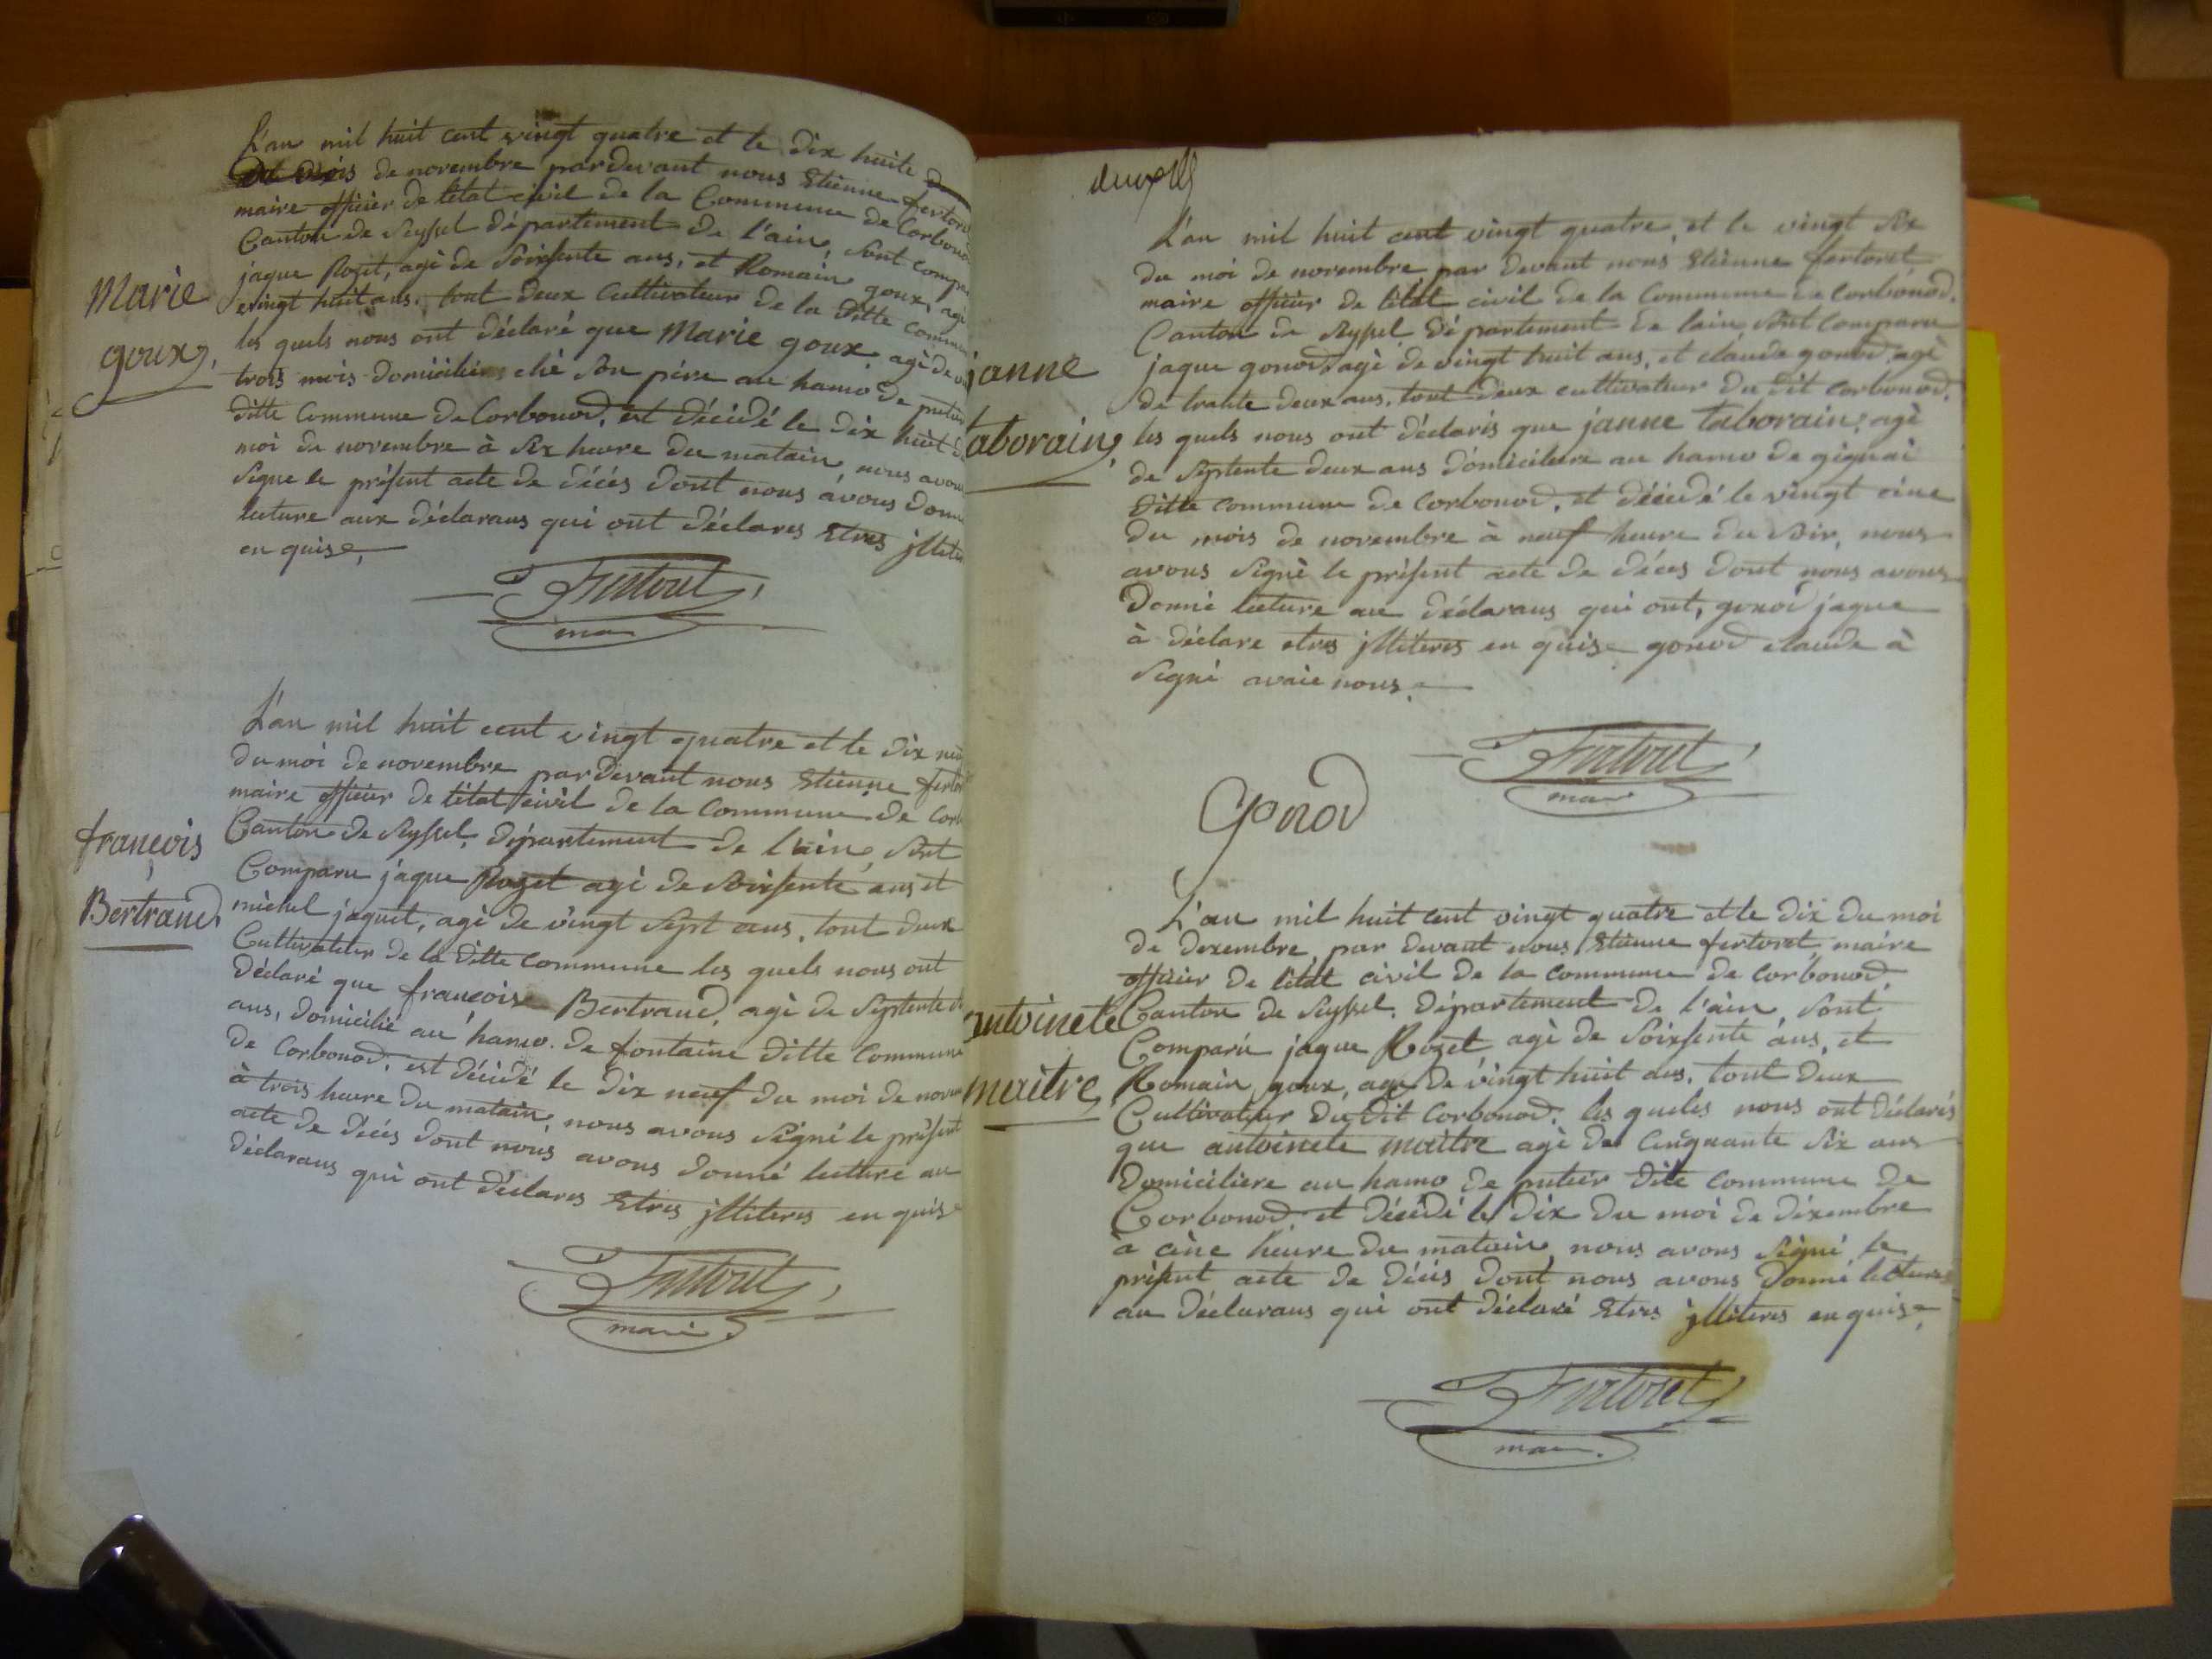 L'an mil huit cent vingt quatre et le dix huite
de novembre pardevant nous Etienne fertor
maire officier de létat civil de la Commune de Corbono
Canton de Seyssel Département de l'ain, Sont compa
jaque Rozet, agè de Soixsente ans, et Romain goux, agè
vingt huit ans. tout deux Cultivateur de la ditte commu
les quels nous ont déclaré que Marie goux agè de
trois mois domicilière ché Son père au hamo de
ditte Commune de Corbonod, est décidé le dix huit d
moi de novembre à Six heure du matain nous avons
Signe le présent acte de décés dont nous avons donn
lecture aux déclarans qui ont déclares Etres jllite
en quise,
Marie
goux,
Fertoret
L'an mil huit cent vingt quatre et le dix neu
du moi de novembre pardevant nous Etienne fertor
maire officier de létat civil de la Commune de Corb
Canton de Seyssel, département de l'ain, Sont
Comparu jaque Rozet agè de Soixsente ans et
michel jaquet, agè de vingt Sept ans, tout deux
Cultivateur de la ditte Commune les quels nous ont
déclaré que francois Bertrand, agè de Septente
ans, domicilié au hamo de fontaine ditte Commune
de Corbonod, est décidé le dix neuf du moi de novem
à trois heure du matain, nous avons Signé le présent
acte de décés dont nous avons donné lecture au
déclarans qui ont déclares Etres jlliteres en quise
françois
Bertrand
Fertoret
L'an mil huit cent vingt quatre, et le vingt Six
du moi de novembre par devant nous Etienne fertoret
maire officier de létat civil de la Commune de Corbonod,
Canton de Seyssel département de lain, Sont Comparu
jaque gonod agè de vingt huit ans, et claude gonod, agè
de trante deux ans, tout deux cultivateur du dit Corbonod,
les quels nous ont déclaris que janne taborain, agè
de Septente deux ans domicilière au hamo de gignai
ditte commune de Corbonod, et décidé le vingt cinc
du mois de novembre à neuf heure du Soir, nous
avons Signé le présent acte de déces dont nous avons
Donnè lecture au déclarans qui ont, gonod jaque
à déclare etres jlliteres en quise gonod claude à
Signé avaie nous.
janne
taborain,
Fertoret
Gonod
L'an mil huit cent vingt quatre et le dix du moi
de dexembre, par devant nous Etienne fertoret, maire
officier de létat civil de la commune de Corbonod,
Canton de Seyssel, Département de l'ain, Sont
Comparu jaque Rozet agè de Soixsente ans, et
Romain goux, age de vingt huit ans, tout deux
Cultivateur du dit Corbonod, les queles nous ont déclarés
que antoinete maitre agè de Cinquante Six ans
Domicilière au hamo de puthier dite commune de
Corbonod, et décédé le dix du moi de dixembre
à cinc heure du matain, nous avons Signé le
présent acte de décés dont nous avons Donné lecture
au déclarans qui ont déclaré Etres jlliteres en quise,
antoinete
maitre
Fertoret